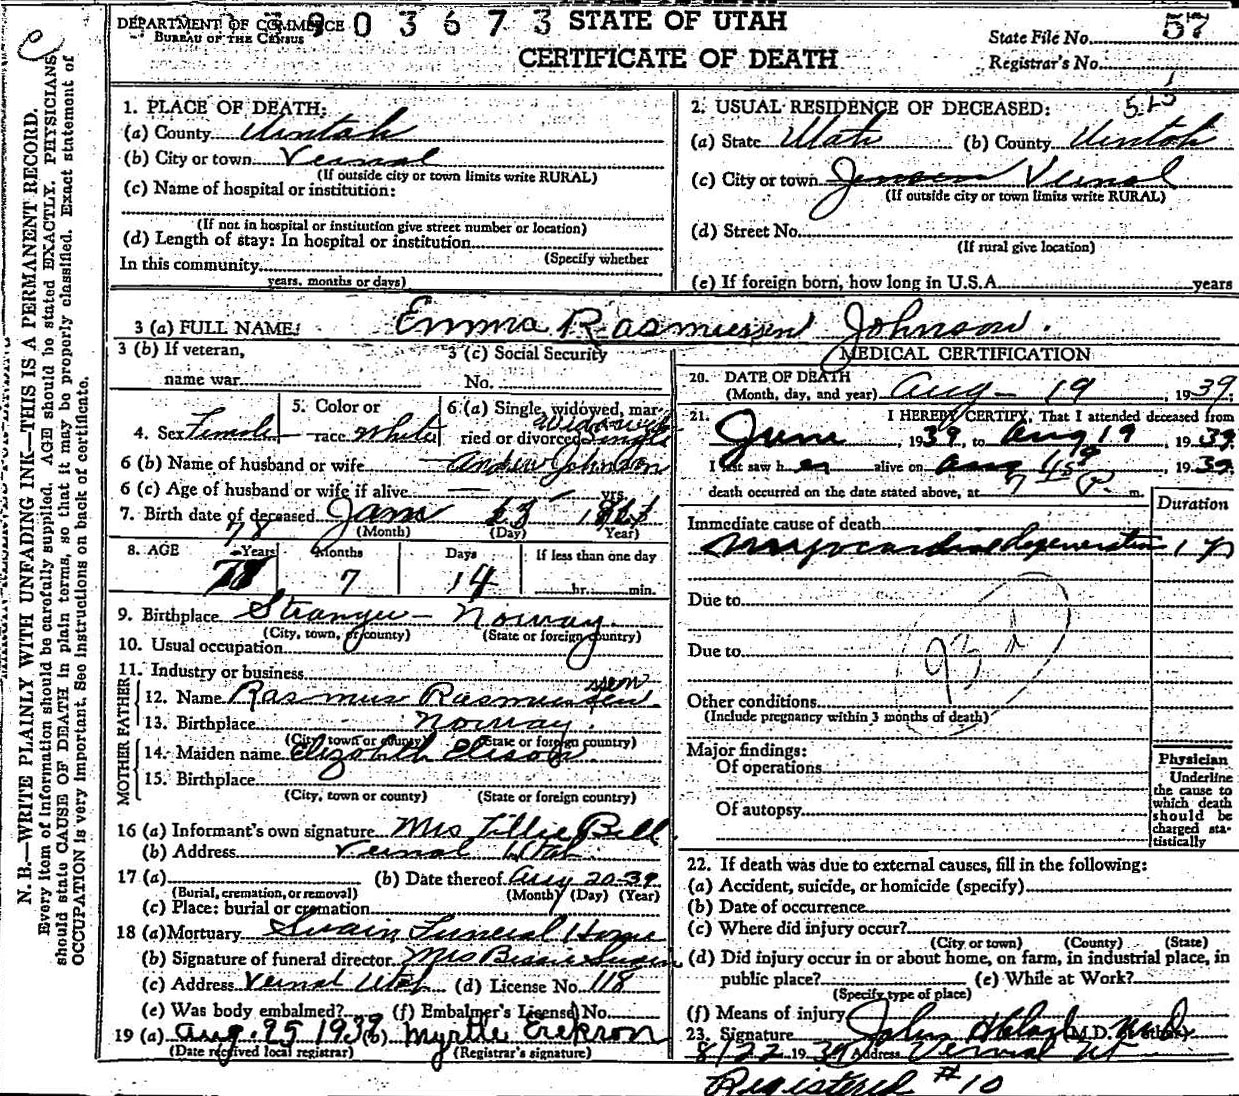 DEPARTMENT OF COMMERCE
BUREAU OF THE CENSUS
3903673
STATE OF UTAH
CERTIFICATE OF DEATH
State File No. 57
Registrar's No.
N. B.—WRITE PLAINLY WITH UNFADING INK—THIS IS A PERMANENT RECORD.
Every item of information should be carefully supplied. AGE should be stated EXACTLY. PHYSICIANS
should state CAUSE OF DEATH in plain terms, so that it may be properly classified. Exact statement of
OCCUPATION is very important. See instructions on back of certificate.
1. PLACE OF DEATH:
(a) County Uintah
(b) City or town Vernal
(If outside city or town limits write RURAL)
(c) Name of hospital or institution:
(If not in hospital or institution give street number or location)
(d) Length of stay: In hospital or institution
(Specify whether
In this community
years, months or days)
2. USUAL RESIDENCE OF DECEASED:
(a) State Utah (b) County Uintah
(c) City or town Jensen Vernal
(If outside city or town limits write RURAL)
(d) Street No.
(If rural give location)
(e) If foreign born, how long in U.S.A. years
3 (a) FULL NAME: Emma Rasmussen Johnson.
3 (b) If veteran,
name war
3 (c) Social Security
No.
4. Sex Female
5. Color or
race White
6. (a) Single, widowed, mar-
ried or divorced widowed single
6 (b) Name of husband or wife Andrew Johnson
6 (c) Age of husband or wife if alive — yrs.
7. Birth date of deceased Jan
(Month) (Day) Year)
8. AGE
Years 78
Months 7
Days 14
If less than one day
hr. min.
9. Birthplace Norway.
(City, town, or county) (State or foreign country)
10. Usual occupation
11. Industry or business
FATHER
12. Name Rasmus Rasmussen ssen
13. Birthplace Norway.
(City, town or county) (State or foreign country)
MOTHER
14. Maiden name Elizabeth
15. Birthplace
(City, town or county) (State or foreign country)
16 (a) Informant's own signature Mrs Tillie Bell
(b) Address Vernal Utah.
17 (a) (b) Date thereof Aug 20-39
(Burial, cremation, or removal) (Month) (Day) (Year)
(c) Place: burial or cremation
18 (a) Mortuary Swain Funeral Home
(b) Signature of funeral director Mrs Bessie Swain
(c) Address Vernal Utah (d) License No. 118
(e) Was body embalmed? (f) Embalmer's License No.
19 (a) Aug. 25 1939 (b) Myrtle Erekson
(Date received local registrar) (Registrar's signature)
MEDICAL CERTIFICATION
20. DATE OF DEATH
(Month, day, and year) Aug - 19, 1939.
21. I HEREBY CERTIFY, That I attended deceased from
June, 1939, to Aug 19, 1939.
I last saw her alive on Aug, 1939.
death occurred on the date stated above, at 7 P. m.
Duration
Immediate cause of death
Myocardial degeneration 1 yr
Due to
Due to
93 d
Other conditions
(Include pregnancy within 3 months of death)
Major findings:
Of operations
Of autopsy
Physician
Underline
the cause to
which death
should be
charged sta-
tistically
22. If death was due to external causes, fill in the following:
(a) Accident, suicide, or homicide (specify)
(b) Date of occurrence
(c) Where did injury occur?
(City or town) (County) (State)
(d) Did injury occur in or about home, on farm, in industrial place, in
public place? (e) While at Work?
(Specify type of place)
(f) Means of injury
23. Signature John (M.D. M.D.
8/22 1939 Address Vernal Ut
Registered #10